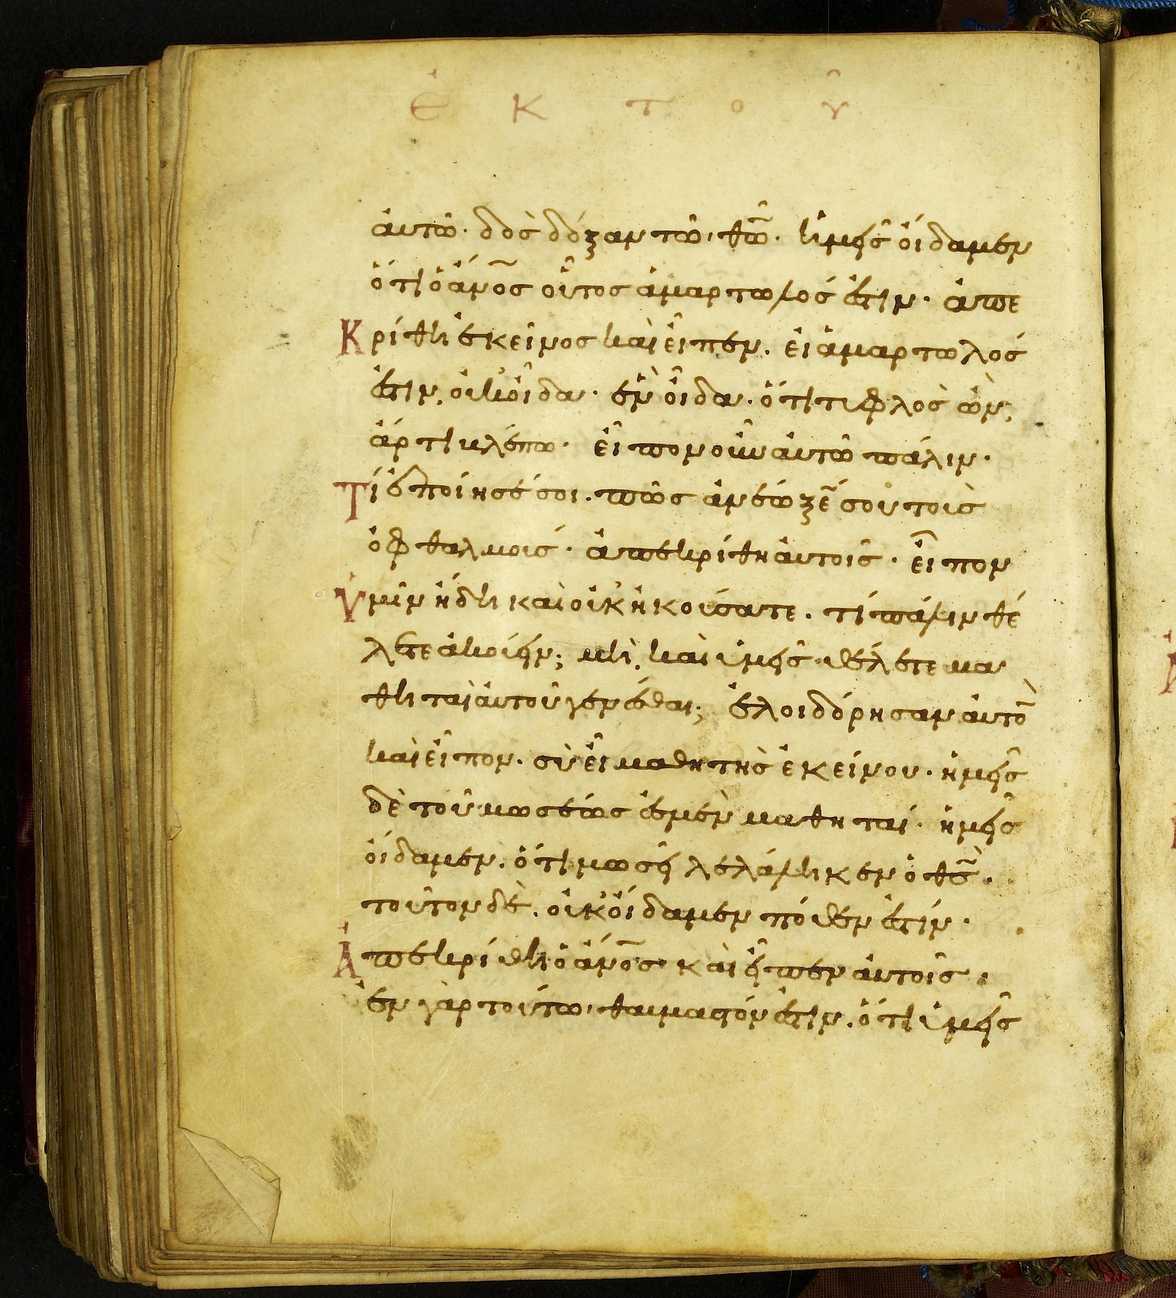 ἑκτοῦ
ἀυτῶ· δὸσ δόξαν τῶ θῶ· ἡμεῖσ ὀίδαμεν
ὅτι ὁ ἄνοσ οὗτοσ ἁμαρτωλόσ ἐστιν· ἀπε
Κρίθη ἐκεῖνοσ καὶ εἶπεν· εἰ ἁμαρτωλόσ
ἐστιν, οὐκ οἶδα· ἓν οἶδα· ὅτι τυφλὸσ ὢν,
ἄρτι βλέπω· εἶπον οὖν ἀυτῶ πάλιν·
Τί ἐποίησέ σοι· πῶσ ἀνέωξέ σου τοὺσ
ὀφθαλμούσ· ἀπεκρίθη ἀυτοῖσ· εἶπον
Ὑμῖν ἤδη καὶ οὐκ ἠκούσατε· τί πάλιν θέ
λετε ἀκούειν; μὴ καὶ ὑμεῖσ θέλετε μα
θηταὶ ἀυτοῦ γενέσθαι; ἐλοιδόρησαν ἀυτὸ
καὶ εἶπον· σὺ εἶ μαθητὴσ ἐκείνου· ἡμεῖσ
δὲ τοῦ μωσέωσ ἐσμὲν μαθηταί· ἡμεῖσ
οἴδαμεν· ὅτι μωσεῖ λελάληκεν ὁ θσ·
τοῦτον δὲ, οὐκ οἴδαμεν πόθεν ἐστίν·
Ἀπεκρίθη ὁ ἄνοσ καὶ εἶπεν ἀυτοῖσ·
ἐν γὰρ τούτω, θαυμαστόν ἐστιν· ὅτι ὑμεῖσ